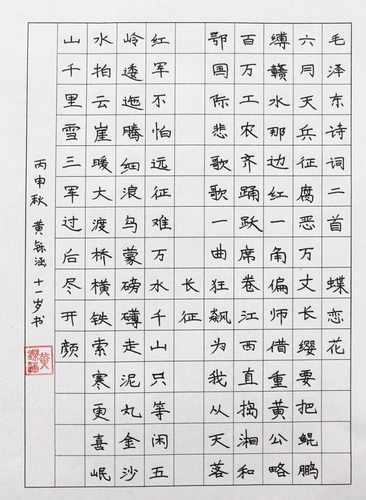 毛泽东诗词二首 蝶恋花
六月天兵征腐恶万丈长缨要把鲲鹏
缚赣水那边红一角偏师借重黄公略
百万工农齐踊跃席卷江西直捣湘和
鄂国际悲歌歌一曲狂飙为我从天落
长征
红军不怕远征难万水千山只等闲五
岭逶迤腾细浪乌蒙磅礴走泥丸金沙
水拍云崖暖大渡桥横铁索寒更喜岷
山千里雪三军过后尽开颜
丙申秋 黄铄涵 十一岁书